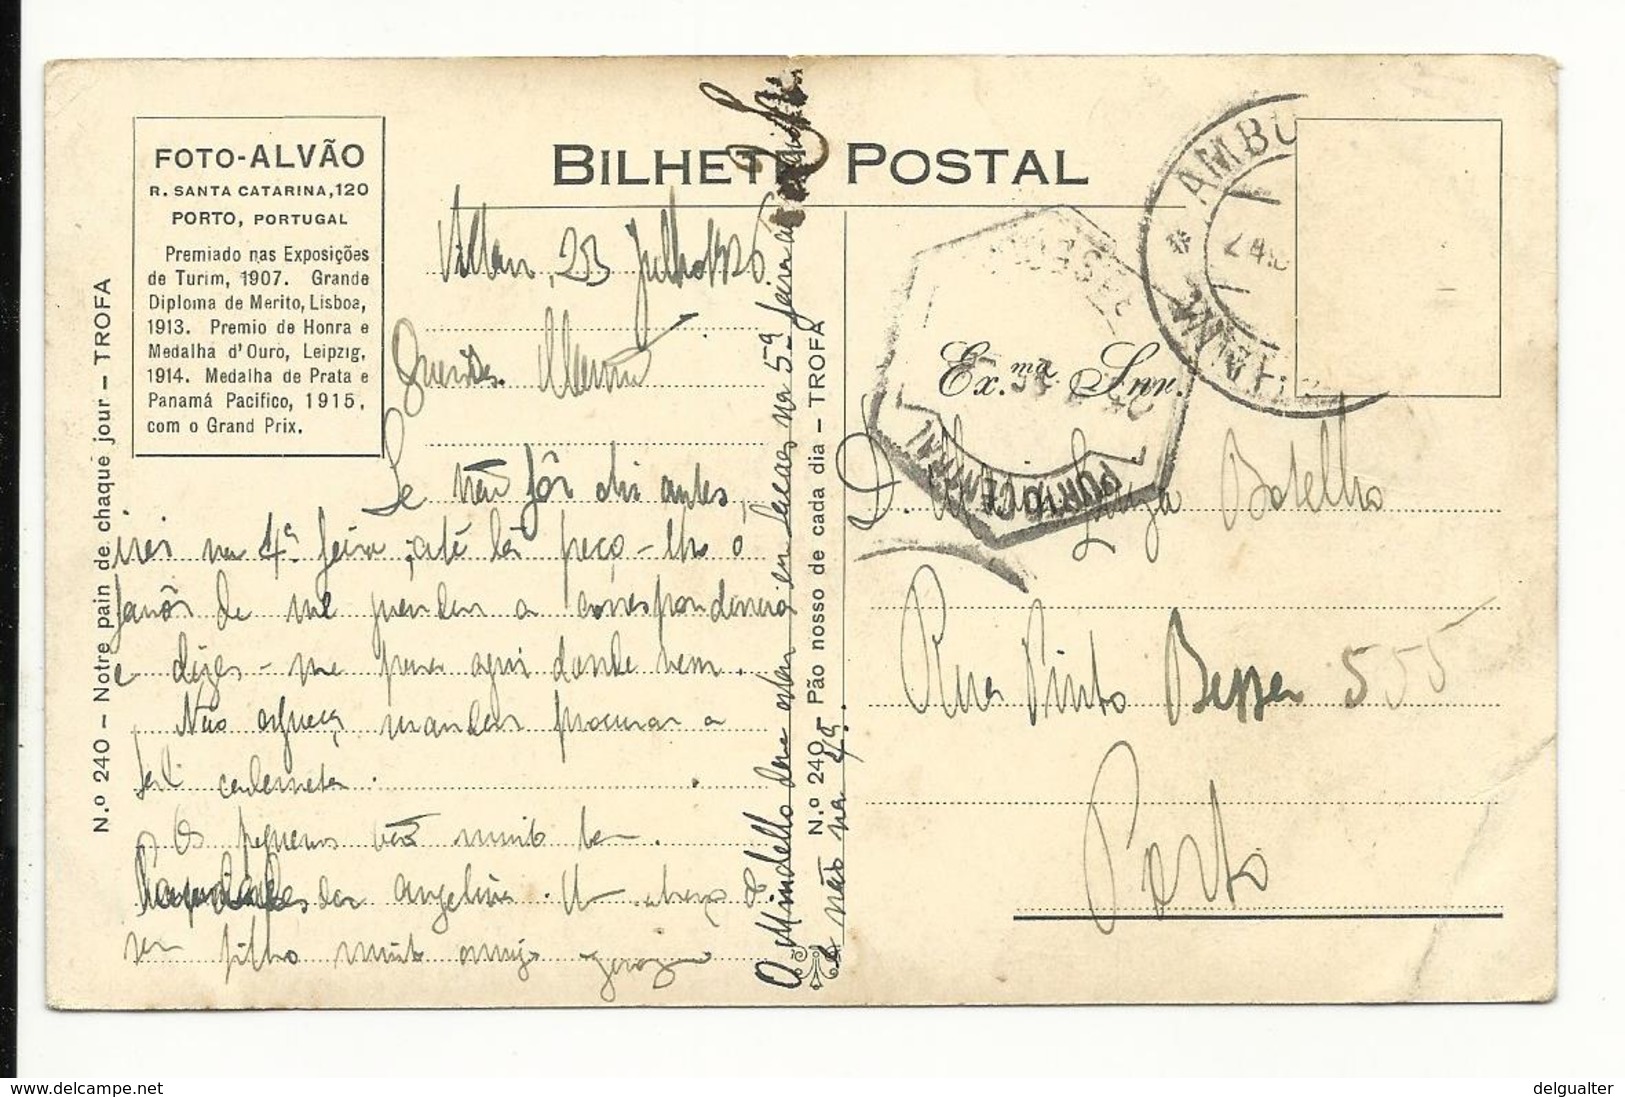 BILHETE POSTAL
FOTO-ALVÃO
R. SANTA CATARINA, 120
PORTO, PORTUGAL
Premiado nas Exposições
de Turim, 1907. Grande
Diploma de Merito, Lisboa,
1913. Premio de Honra e
Medalha d'Ouro, Leipzig,
1914. Medalha de Prata e
Panamá Pacifico, 1915,
com o Grand Prix.
N.º 240 — Notre pain de chaque jour — TROFA
23 Julho 1926
Querida
Se não fôr dia antes,
irei na 4ª feira; até lá peço-lhe o
favôr de me guardar a correspondencia
e diga-me para aqui donde vem.
Não esqueça mandar procurar a
caderneta.
Os pequenos vão muito bem.
Angelina. Um abraço d
seu filho muito amigo
O Mindello deve estar em na 5ª feira
e não na 4ª.
N.º 240 Pão nosso de cada dia — TROFA
Ex.ma Snr.
D. Maria Luiza Botelho
Rua Pinto Bessa 555
Porto
AMBU
PORTO CENTRAL
delcampe.net
delgualter